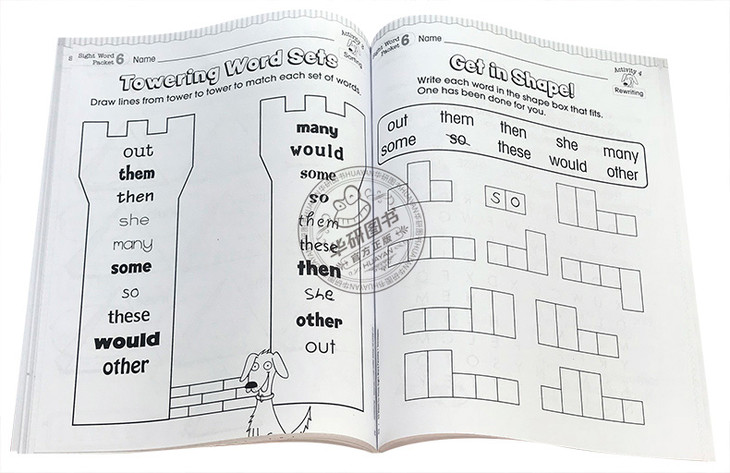 8 Sight Word
Packet 6 Name
Sorting
Towering Word Sets
Draw lines from tower to tower to match each set of words.
out
them
then
she
many
some
so
these
would
other
many
would
some
so
them
these
then
she
other
out
Sight Word
Packet 6 Name
Activity 4
Rewriting
Get in Shape!
Write each word in the shape box that fits.
One has been done for you.
out them then she many
some so these would other
s o
华研图书
官方正版
HUAYAN